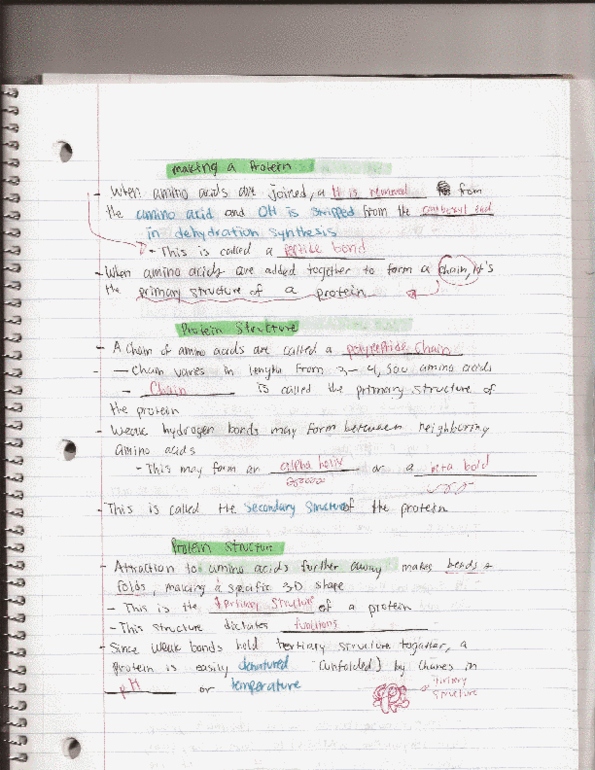 making a Protein
- When amino acids are joined, a H is removed from
the amino acid and OH is stripped from the carboxyl end
in dehydration synthesis
- This is called a peptide bond
- When amino acids are added together to form a chain, it's
the primary structure of a protein
Protein Structure
- A Chain of amino acids are called a polypeptide chain
- Chain varies in lengths from 3-4,500 amino acids
- Chain is called the primary structure of
the protein
- Weak hydrogen bonds may form between neighboring
amino acids
- This may form an alpha helix or a beta bold
- This is called the Secondary Structure of the protein
Protein Structure
- Attraction to amino acids further away makes bends &
folds, making a specific 3D shape
- This is the structure of a protein
- This structure dictates functions
- Since weak bonds hold tertiary structure together, a
protein is easily denatured (unfolded) by chanes in
pH or temperature
Tertiary
Structure